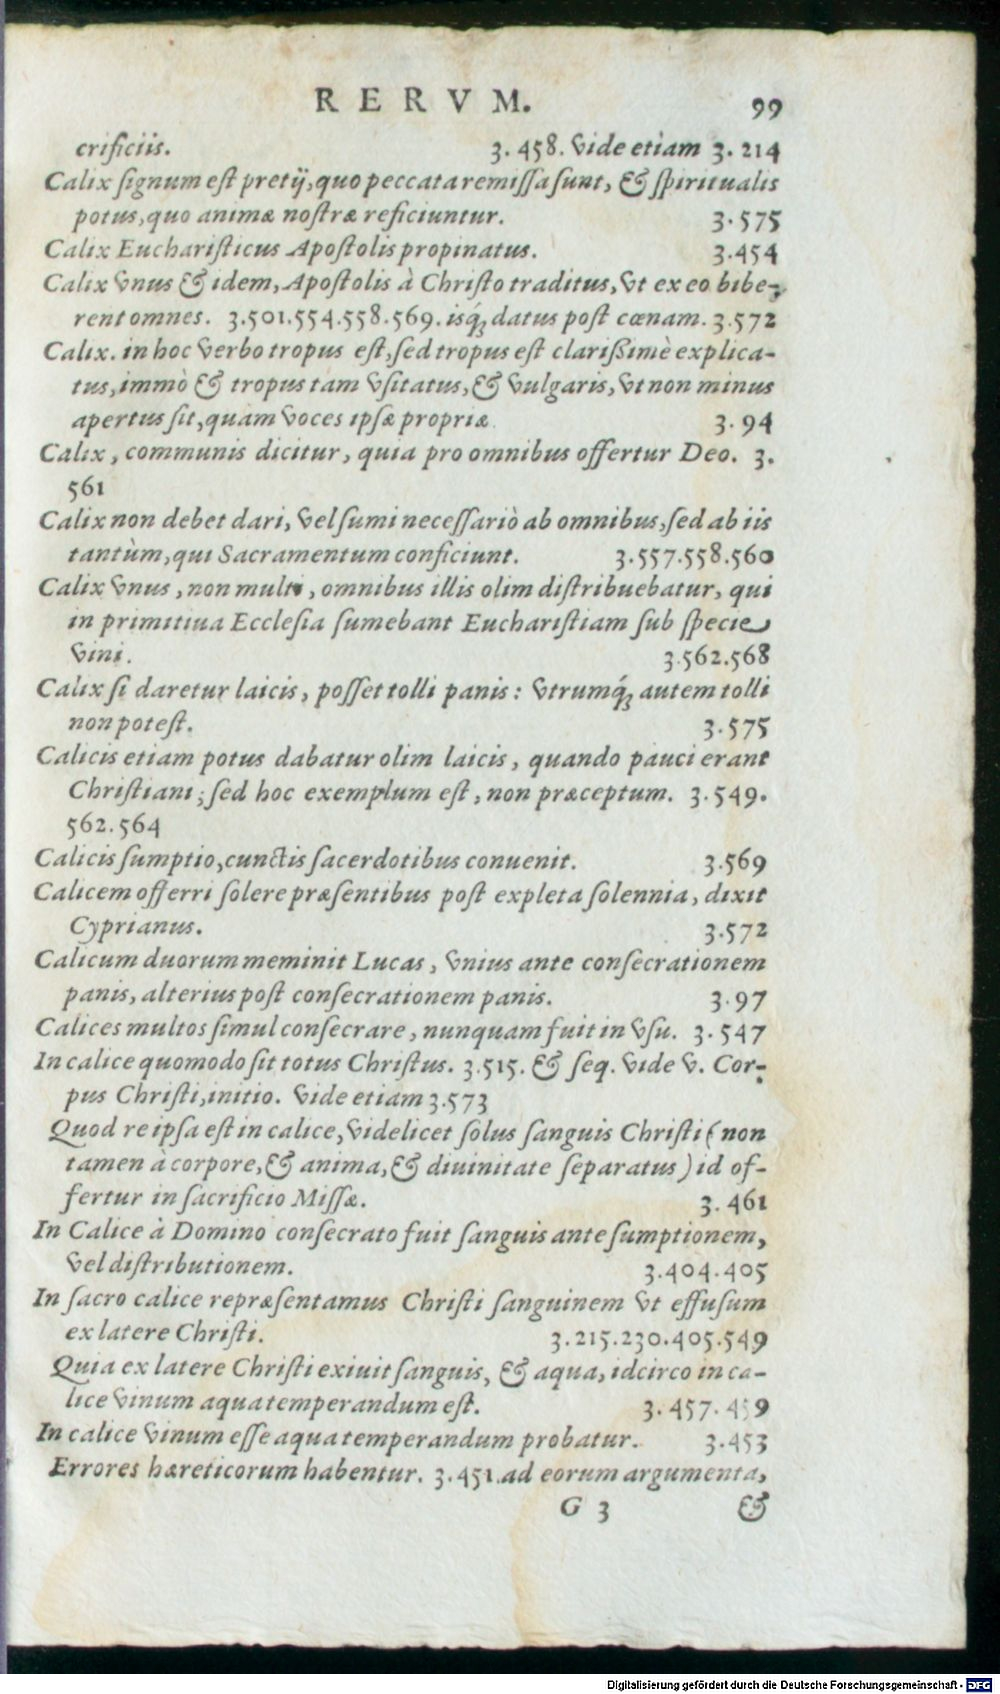 RERVM. 99
crificiis. 3. 458. Vide etiàm 3. 214
Calix ſignum eſt pretij, quo peccata remiſſa ſunt, & ſpiritualis
potus, quo animæ noſtræ reficiuntur. 3.575
Calix Euchariſticus Apoſtolis propinatus. 3.454
Calix Vnus & idem, Apoſtolis à Chriſto traditus, Vt ex eo bibe-
rent omnes. 3.501.554.558.569. isq́; datus poſt cœnam. 3.572
Calix. in hoc Verbo tropus eſt, ſed tropus eſt clarißimè explica-
tus, immò & tropus tam Vſitatus, & Vulgaris, Vt non minus
apertus ſit, quàm Voces ipſæ propriæ. 3. 94
Calix, communis dicitur, quia pro omnibus offertur Deo. 3.
561
Calix non debet dari, Vel ſumi neceſſariò ab omnibus, ſed ab iis
tantùm, qui Sacramentum conficiunt. 3.557.558.560
Calix Vnus, non multi, omnibus illis olim diſtribuebatur, qui
in primitiua Eccleſia ſumebant Euchariſtiam ſub ſpecie
Vini. 3.562.568
Calix ſi daretur laicis, poſſet tolli panis: Vtrumq́; autem tolli
non poteſt. 3.575
Calicis etiam potus dabatur olim laicis, quando pauci erant
Chriſtiani; ſed hoc exemplum eſt, non præceptum. 3.549.
562.564
Calicis ſumptio, cunctis ſacerdotibus conuenit. 3.569
Calicem offerri ſolere præſentibus poſt expleta ſolennia, dixit
Cyprianus. 3.572
Calicum duorum meminit Lucas, Vnius ante conſecrationem
panis, alterius poſt conſecrationem panis. 3.97
Calices multos ſimul conſecrare, nunquam fuit in Vſu. 3.547
In calice quomodo ſit totus Chriſtus. 3.515. & ſeq. Vide V. Cor-
pus Chriſti, initio. Vide etiam 3.573
Quod reipſa eſt in calice, Videlicet ſolus ſanguis Chriſti (non
tamen à corpore, & anima, & diuinitate ſeparatus) id of-
fertur in ſacrificio Miſſæ. 3. 461
In Calice à Domino conſecrato fuit ſanguis ante ſumptionem,
Vel diſtributionem. 3.404.405
In ſacro calice repræſentamus Chriſti ſanguinem Vt effuſum
ex latere Chriſti. 3.215.230.405.549
Quia ex latere Chriſti exiuit ſanguis, & aqua, idcirco in ca-
lice Vinum aqua temperandum eſt. 3. 457. 459
In calice Vinum eſſe aqua temperandum probatur. 3.453
Errores hæreticorum habentur. 3.451. ad eorum argumenta,
G 3 &
Digitalisierung gefördert durch die Deutsche Forschungsgemeinschaft - DFG